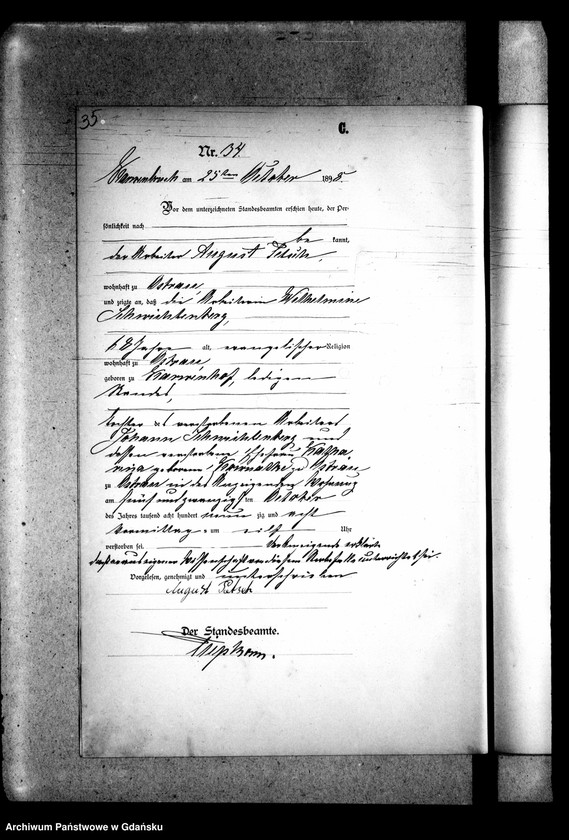 35
C.
Nr. 34.
am 25ten October 1898.
Vor dem unterzeichneten Standesbeamten erschien heute, der Per-
sönlichkeit nach
be kannt,
der Arbeiter August
wohnhaft zu Ostrau
und zeigte an, daß die Arbeiterin Wilhelmine
Schwichtenberg,
68 Jahre alt, evangelischer Religion
wohnhaft zu Ostrau
geboren zu ledigen
Standes,
Tochter des verstorbenen Arbeiters
Johann Schwichtenberg und
dessen verstorbenen Ehefrau
geborenen zu Ostrau
zu Ostrau in des Anzeigenden Wohnung
am fünfundzwanzigsten October
des Jahres tausend acht hundert neunzig und acht
Vormittags um elf Uhr
verstorben sei. Anzeigende erklärte
daß er aus eigener Wissenschaft von diesem Sterbefalle unterrichtet sei.
Vorgelesen, genehmigt und unterschrieben
August
Der Standesbeamte.
Archiwum Państwowe w Gdańsku